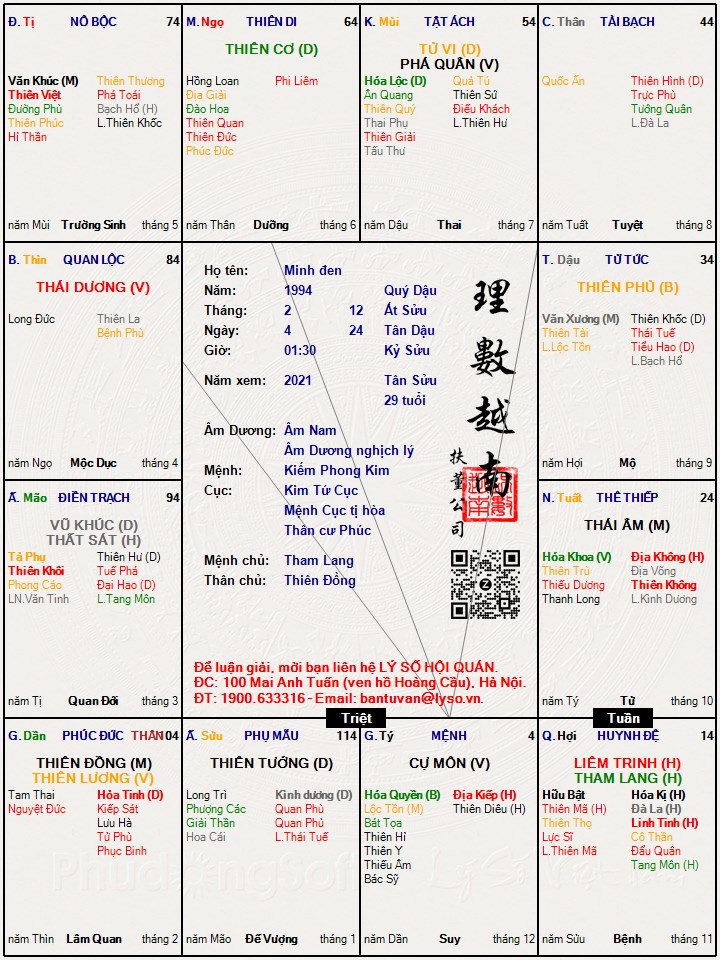 Đ. Tị NÔ BỘC 74
Văn Khúc (M) Thiên Thương
Thiên Việt Phá Toái
Đường Phù Bạch Hổ (H)
Thiên Phúc L.Thiên Khốc
Hỉ Thần
năm Mùi Trường Sinh tháng 5
M. Ngọ THIÊN DI 64
THIÊN CƠ (D)
Hồng Loan Phi Liêm
Địa Giải
Đào Hoa
Thiên Quan
Thiên Đức
Phúc Đức
năm Thân Dưỡng tháng 6
K. Mùi TẬT ÁCH 54
TỬ VI (D)
PHÁ QUÂN (V)
Hóa Lộc (D) Quả Tú
Ân Quang Thiên Sứ
Thiên Quý Điếu Khách
Thai Phụ L.Thiên Hư
Thiên Giải
Tấu Thư
năm Dậu Thai tháng 7
C. Thân TÀI BẠCH 44
Quốc Ấn Thiên Hình (D)
Trực Phù
Tướng Quân
L.Đà La
năm Tuất Tuyệt tháng 8
B. Thìn QUAN LỘC 84
THÁI DƯƠNG (V)
Long Đức Thiên La
Bệnh Phù
năm Ngọ Mộc Dục tháng 4
Họ tên: Minh đen
Năm: 1994 Quý Dậu
Tháng: 2 12 Ất Sửu
Ngày: 4 24 Tân Dậu
Giờ: 01:30 Kỷ Sửu
Năm xem: 2021 Tân Sửu
29 tuổi
Âm Dương: Âm Nam
Âm Dương nghịch lý
Mệnh: Kiếm Phong Kim
Cục: Kim Tứ Cục
Mệnh Cục tị hòa
Thân cư Phúc
Mệnh chủ: Tham Lang
Thân chủ: Thiên Đồng
理數越南
扶董公司
Để luận giải, mời bạn liên hệ LÝ SỐ HỘI QUÁN.
ĐC: 100 Mai Anh Tuấn (ven hồ Hoàng Cầu), Hà Nội.
ĐT: 1900.633316 - Email: bantuvan@lyso.vn.
T. Dậu TỬ TỨC 34
THIÊN PHỦ (B)
Văn Xương (M) Thiên Khốc (D)
Thiên Tài Thái Tuế
L.Lộc Tồn Tiểu Hao (D)
L.Bạch Hổ
năm Hợi Mộ tháng 9
Ấ. Mão ĐIỀN TRẠCH 94
VŨ KHÚC (D)
THẤT SÁT (H)
Tả Phụ Thiên Hư (D)
Thiên Khôi Tuế Phá
Phong Cáo Đại Hao (D)
LN.Văn Tinh L.Tang Môn
năm Tị Quan Đới tháng 3
N. Tuất THÊ THIẾP 24
THÁI ÂM (M)
Hóa Khoa (V) Địa Không (H)
Thiên Trù Địa Võng
Thiếu Dương Thiên Không
Thanh Long L.Kình Dương
năm Tý Tử tháng 10
Triệt
Tuần
G. Dần PHÚC ĐỨC THÂN 104
THIÊN ĐỒNG (M)
THIÊN LƯƠNG (V)
Tam Thai Hỏa Tinh (D)
Nguyệt Đức Kiếp Sát
Lưu Hà
Tử Phù
Phục Binh
năm Thìn Lâm Quan tháng 2
Ấ. Sửu PHỤ MẪU 114
THIÊN TƯỚNG (D)
Long Trì Kình dương (D)
Phượng Các Quan Phủ
Giải Thần Quan Phù
Hoa Cái L.Thái Tuế
năm Mão Đế Vượng tháng 1
G. Tý MỆNH 4
CỰ MÔN (V)
Hóa Quyền (B) Địa Kiếp (H)
Lộc Tồn (M) Thiên Diêu (H)
Bát Tọa
Thiên Hỉ
Thiên Y
Thiếu Âm
Bác Sỹ
năm Dần Suy tháng 12
Q. Hợi HUYNH ĐỆ 14
LIÊM TRINH (H)
THAM LANG (H)
Hữu Bật Hóa Kị (H)
Thiên Mã (H) Đà La (H)
Thiên Thọ Linh Tinh (H)
Lực Sĩ Cô Thần
L.Thiên Mã Đẩu Quân
Tang Môn (H)
năm Sửu Bệnh tháng 11